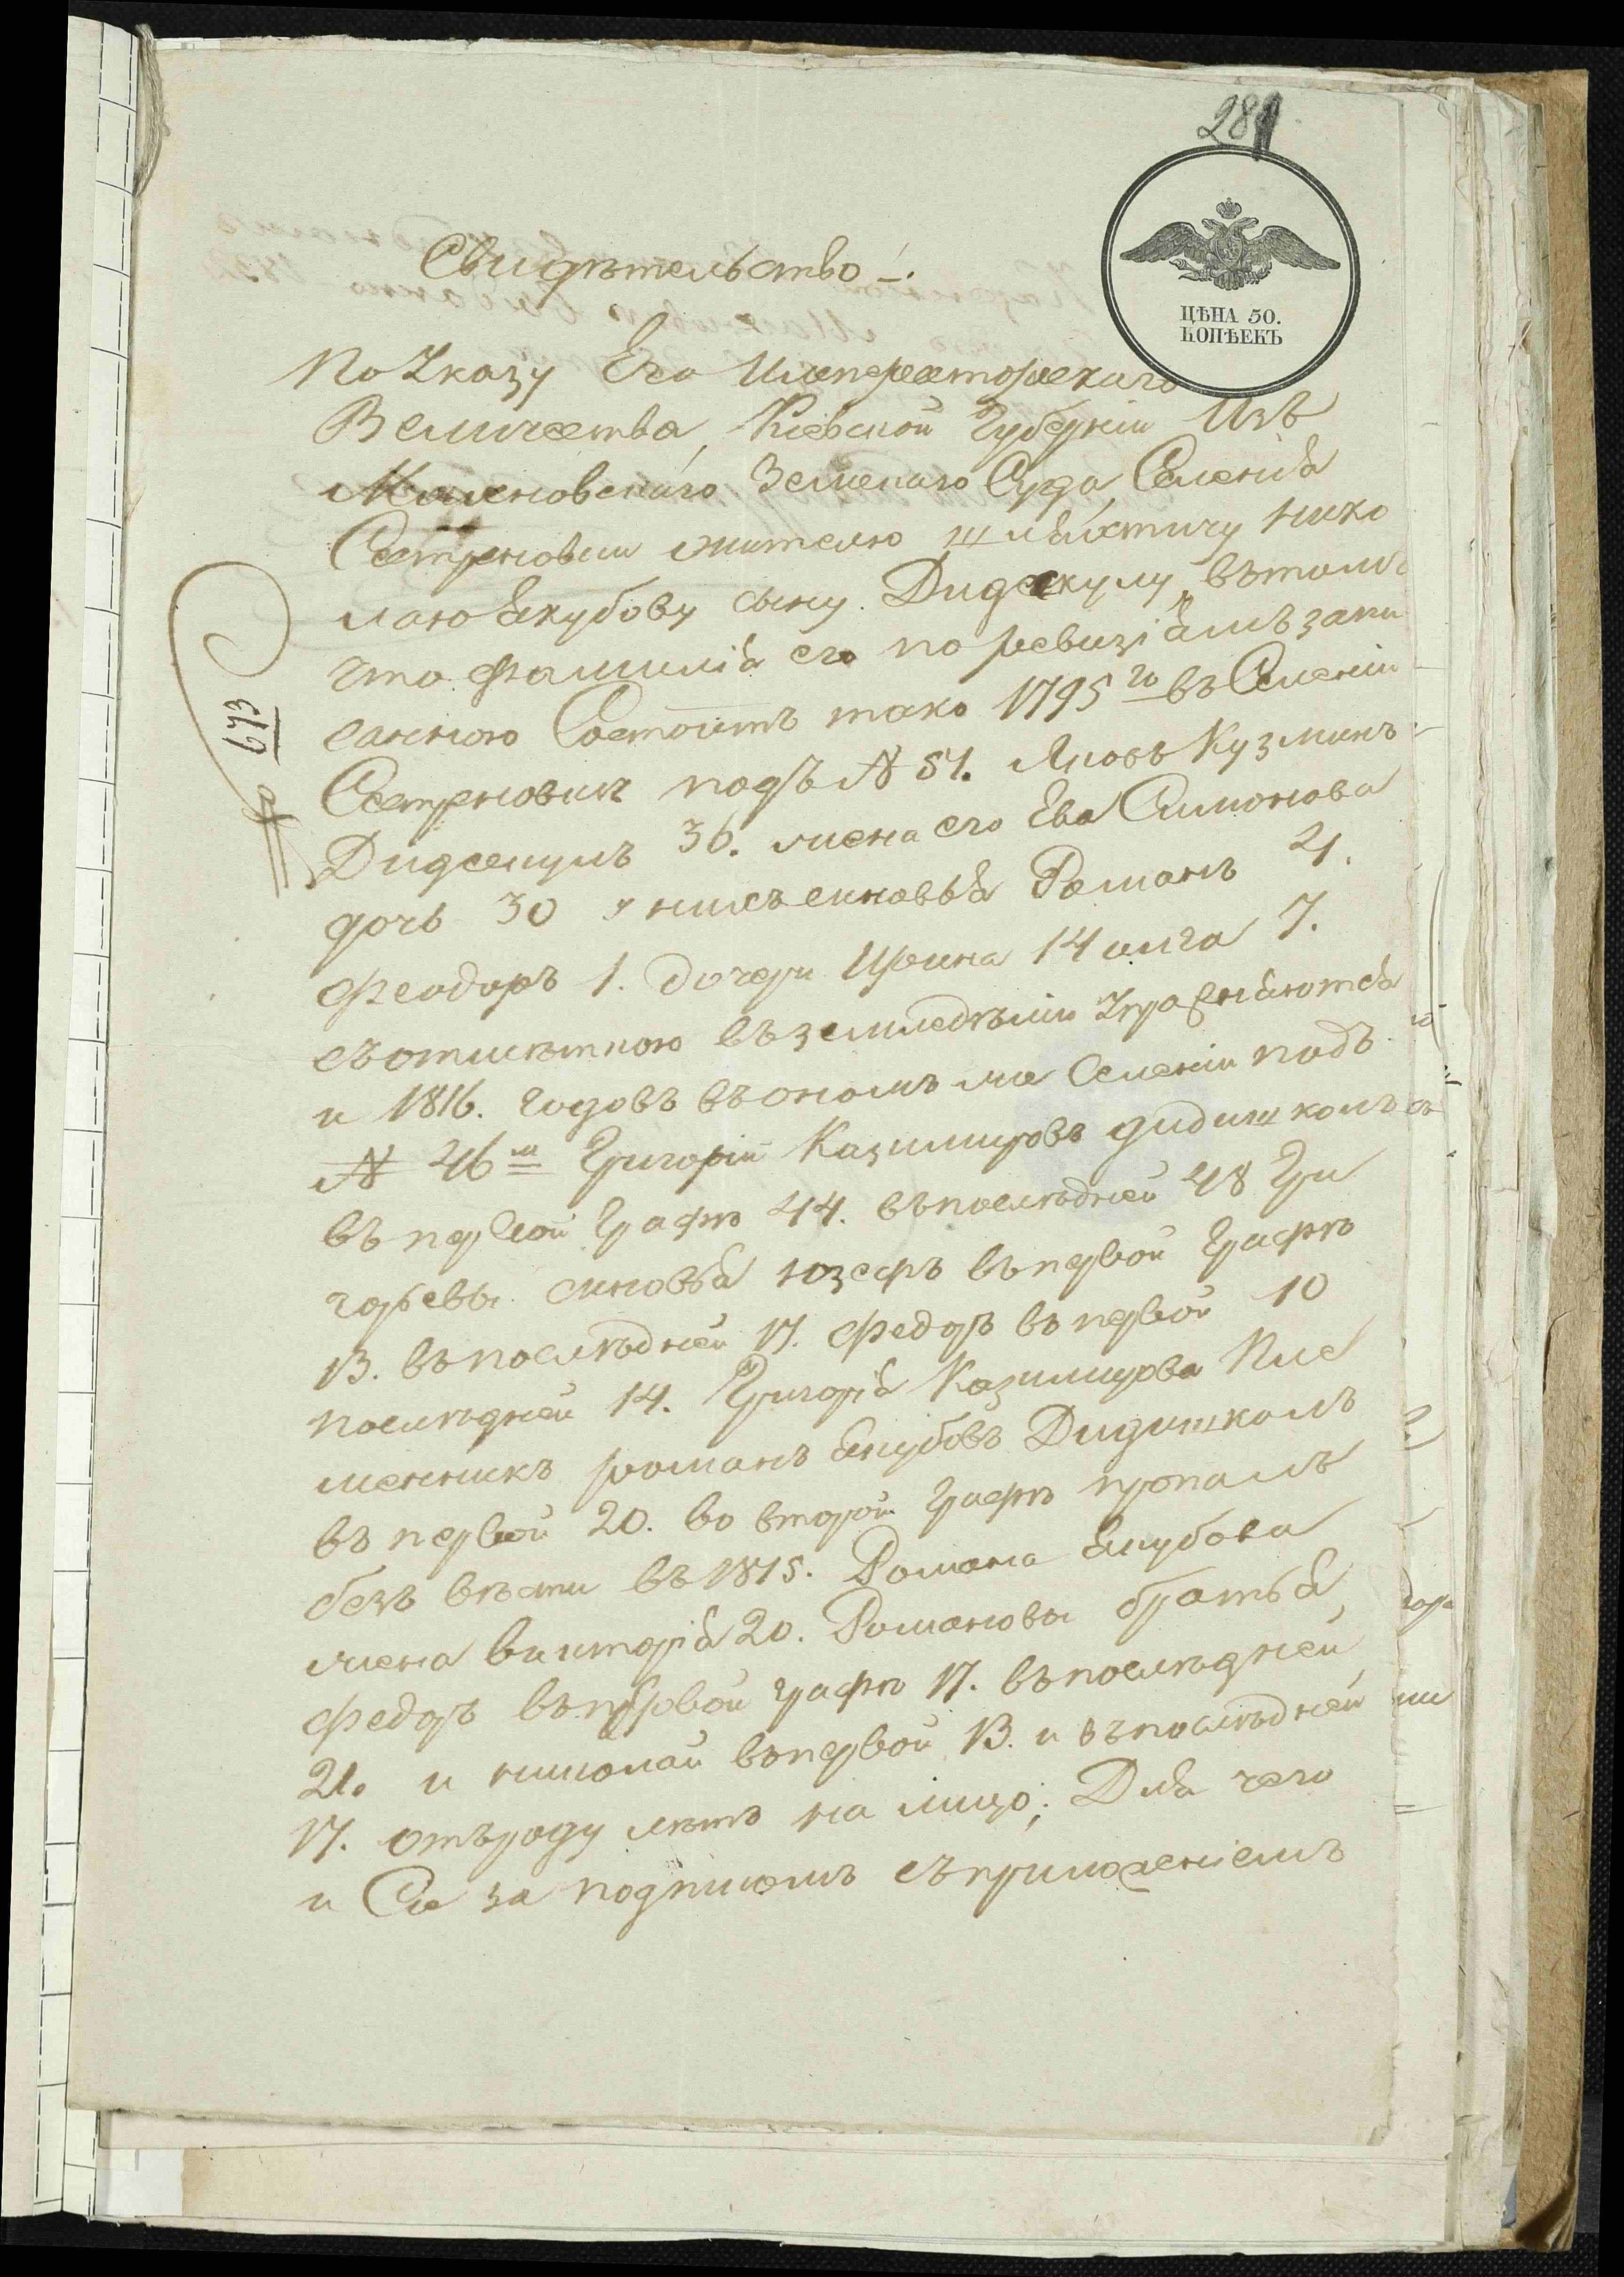 281
ЦѢНА 50.
КОПѢЕКЪ
Свидѣтельство.
По Указу Его Императорскаго
Величества, Кіевской Губерніи Изъ
Земскаго Суда, Селенія
жителю шляхтичу Нико
лаю Якубову сыну Дидскулу, въ томъ
что фамилія его по ревизіямъ запи
санною Состоитъ тако 1795го въ Селеніи
подъ № 51. Яковъ Кузминъ
Дидскулъ 36. жена его Ева Симонова
дочь 30 у нихъ синовья Романъ 4.
Феодоръ 1. дочери Ирина 14 Олга 7.
съ отметкою въ земледѣліи Упражняются
и 1816. годовъ въ ономъ же Селеніи подъ
№ 46м Григорій Казимировъ Дидишколъ
въ первой Графѣ 44. въ послѣдней 48 Гри
горьевы синовья Юзефъ въ первой Графѣ
13. въ послѣдней 17. Федоръ въ первой 10
послѣдней 14. Григорія Казимирова Пле
менникъ романъ Якубовъ Дидишколъ
въ первой 20. во второй Графѣ пропалъ
безъ вѣсти въ 1815. Романа Якубова
жена Викторія 20. Романовы братья
Федоръ въ первой Графѣ 17. въ послѣдней
21. и николай въ первой 13. и въ послѣдней
17. отъ роду лѣтъ на лицо; Для чего
и Сіе за подписомъ съ приложеніемъ
673